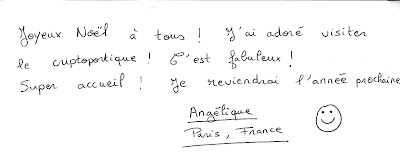 Joyeux Noël à tous ! J'ai adoré visiter
le criptoportique ! C'est fabuleux !
Super accueil ! Je reviendrai l'année prochaine
Angélique
Paris, France